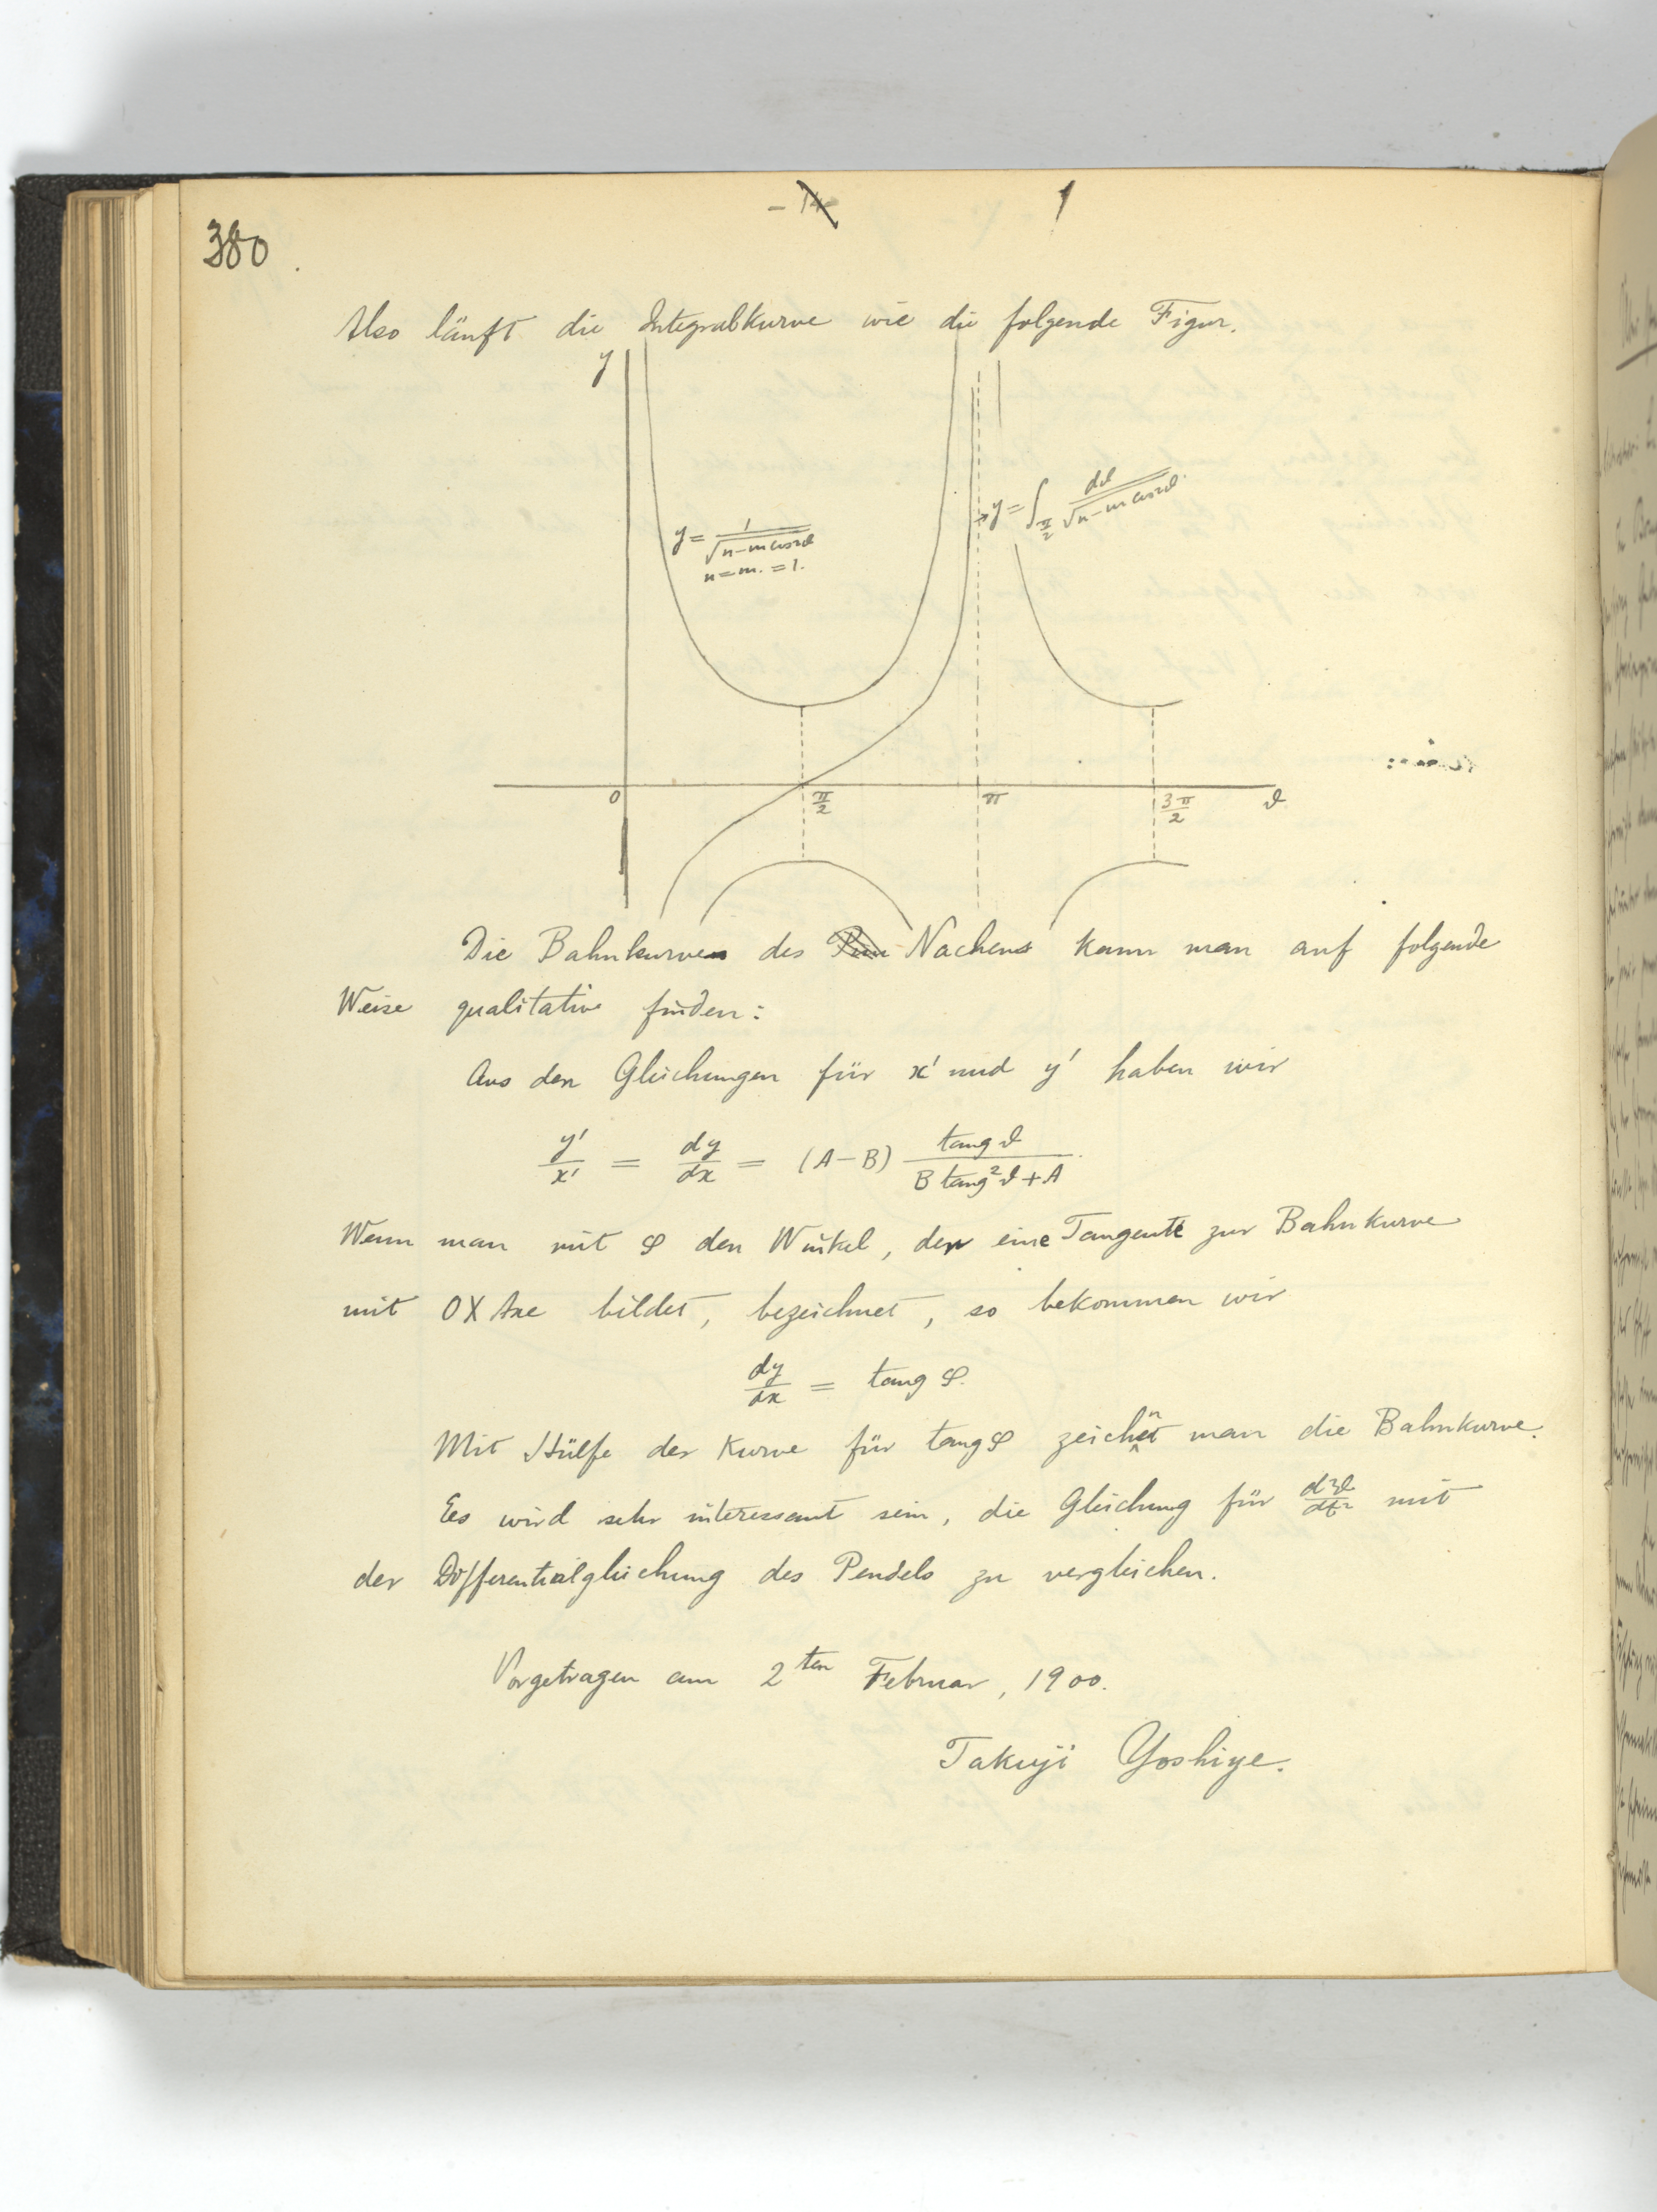 380.
1
Also läuft die Integralkurve wie die folgende Figur.
y
y = ∫_{π/2} dϑ/√(n−m cos2ϑ)
y = 1/√(n−m cos2ϑ)
n = m. = 1.
0 π/2 π 3π/2 ϑ
Die Bahnkurve des Nachens kann man auf folgende
Weise qualitativ finden:
Aus den Gleichungen für x' und y' haben wir
y'/x' = dy/dx = (A−B) tang ϑ / (B tang²ϑ + A).
Wenn man mit φ den Winkel, den eine Tangente zur Bahnkurve
mit OX Axe bildet, bezeichnet, so bekommen wir
dy/dx = tang φ.
Mit Hülfe der Kurve für tang φ zeichnet man die Bahnkurve.
Es wird sehr interessant sein, die Gleichung für d²ϑ/dt² mit
der Differentialgleichung des Pendels zu vergleichen.
Vorgetragen am 2ten Februar, 1900.
Takuji Yoshiye.